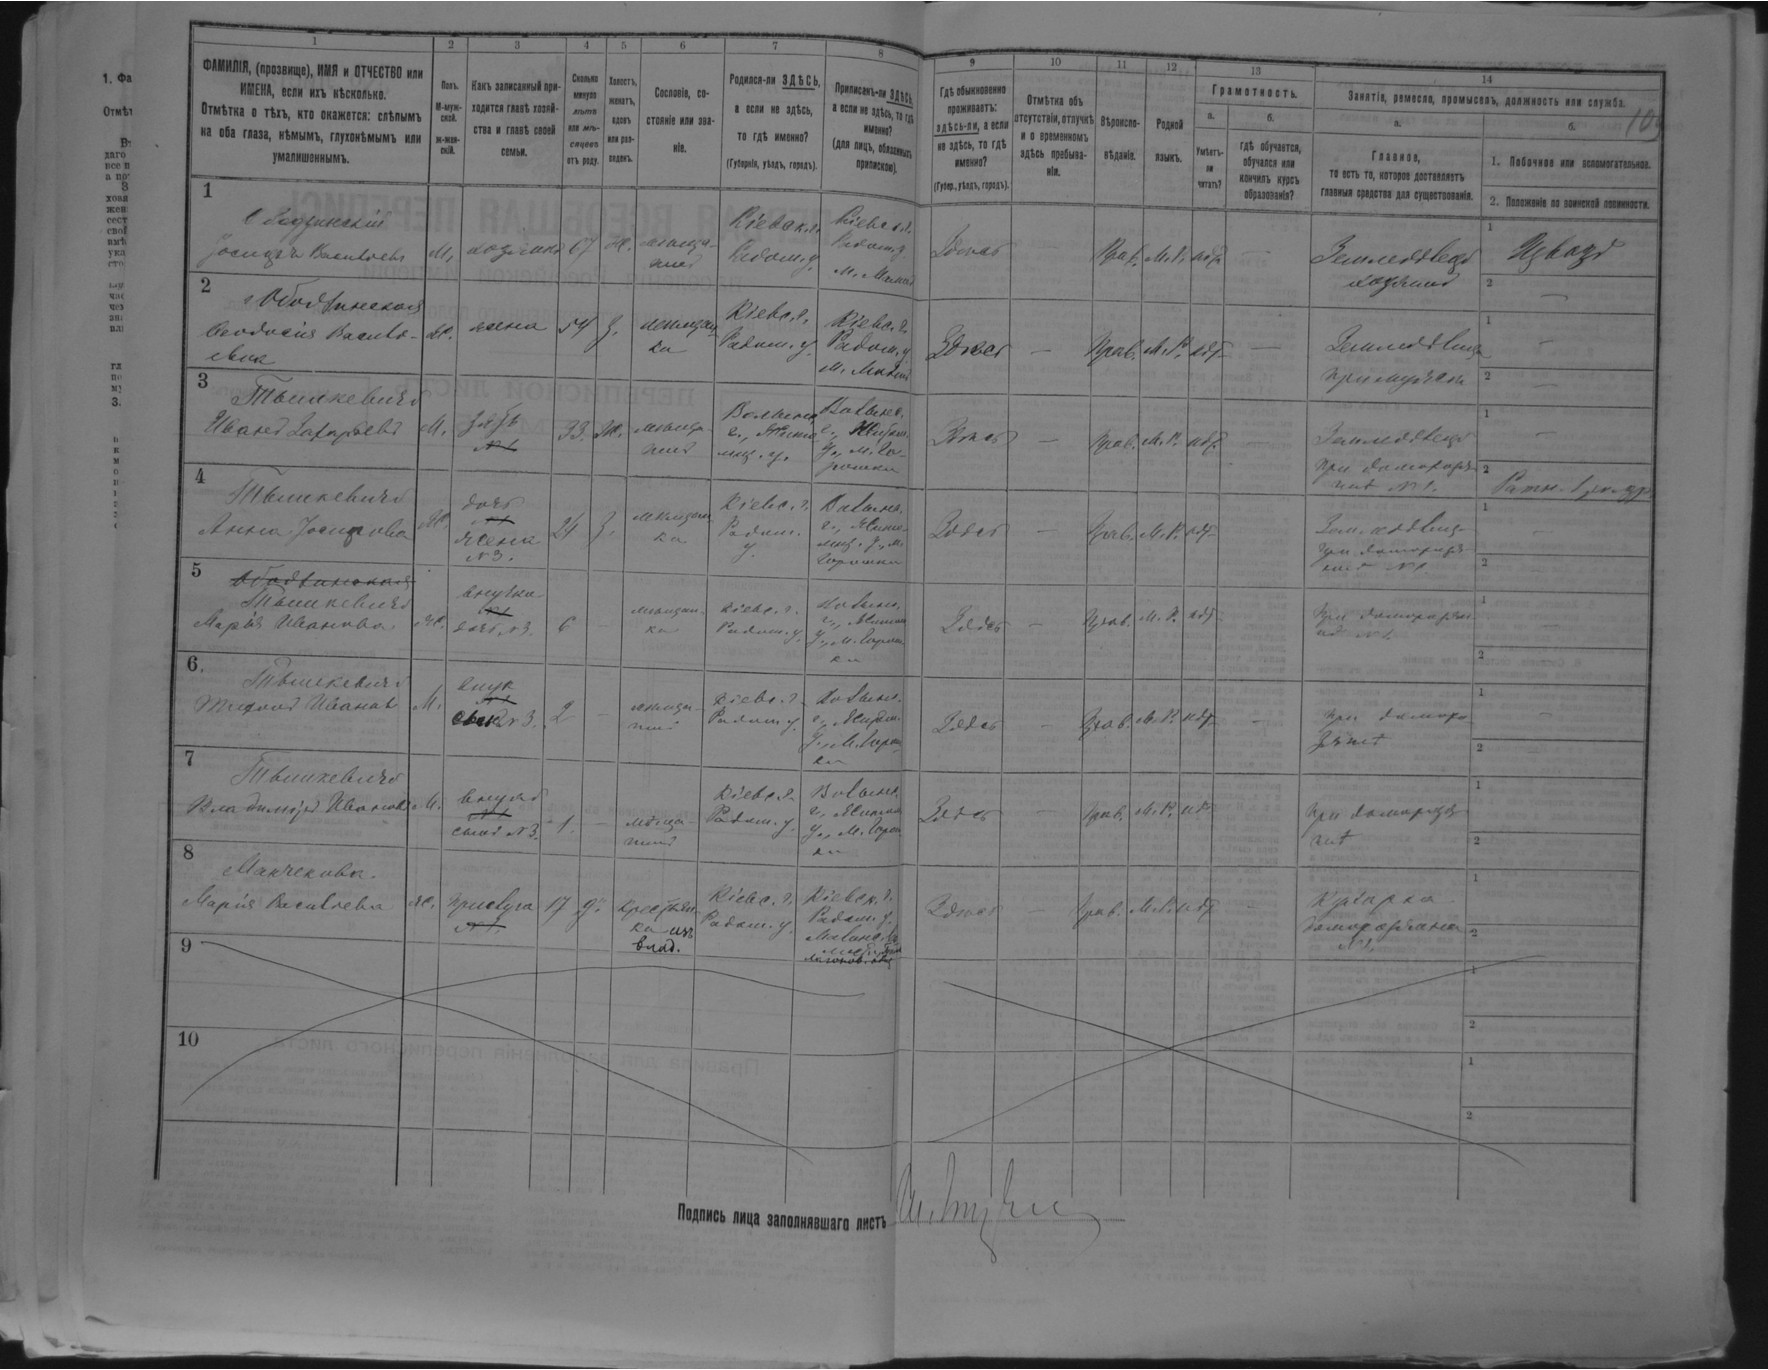 1 2 3 4 5 6 7 8 9 10 11 12 13 14
ФАМИЛІЯ, (прозвище), ИМЯ и ОТЧЕСТВО или
ИМЕНА, если ихъ нѣсколько.
Отмѣтка о тѣхъ, кто окажется: слѣпымъ
на оба глаза, нѣмымъ, глухонѣмымъ или
умалишеннымъ.
Полъ.
М-муж-
ской.
ж-жен-
скій.
Какъ записанный при-
ходится главѣ хозяй-
ства и главѣ своей
семьи.
Сколько
минуло
лѣтъ
или мѣ-
сяцевъ
отъ роду.
Холостъ,
женатъ,
вдовъ
или раз-
веденъ.
Сословіе, со-
стояніе или зва-
ніе.
Родился-ли ЗДѢСЬ,
а если не здѣсь,
то гдѣ именно?
(Губернія, уѣздъ, городъ).
Приписанъ-ли ЗДѢСЬ,
а если не здѣсь, то гдѣ
именно?
(для лицъ, обязанныхъ
припискою).
Гдѣ обыкновенно
проживаетъ:
здѣсь-ли, а если
не здѣсь, то гдѣ
именно?
(Губер., уѣздъ, городъ).
Отмѣтка объ
отсутствіи, отлучкѣ
и о временномъ
здѣсь пребыва-
ніи.
Вѣроиспо-
вѣданіе.
Родной
языкъ.
Грамотность.
а.
Умѣетъ-
ли
читать?
б.
гдѣ обучается,
обучался или
кончилъ курсъ
образованія?
Занятіе, ремесло, промыселъ, должность или служба.
а.
Главное,
то есть то, которое доставляетъ
главныя средства для существованія.
б.
1. Побочное или вспомогательное.
2. Положеніе по воинской повинности.
1
Іосифъ Васильевъ
М. хозяинъ 67 Ж. мѣща-
нинъ
Кіевск. г.
Радом. у.
Кіевс. г.
Радом. у.
м. Малинъ
Здѣсь — Прав. М. Р. нѣтъ —
Земледѣлецъ
хозяинъ
1 Извозъ
2 —
2
Ѳеодосія Василь-
евна
Ж. жена 54 З. мѣщан-
ка
Кіевс. г.
Радом. у.
Кіевс. г.
Радом. у.
м. Малинъ
Здѣсь — Прав. М. Р. нѣт —
Земледѣлица
при мужѣ
1 —
2 —
3
Тышкевичъ
Иванъ Захарьевъ
М. зять
№1
33. Ж. мѣща-
нинъ
Волынс.
г., Жито-
мир. у.
Волынс.
г., Житом.
у., м. Го-
рошки
Здѣсь — Прав. М. Р. нѣт —
Земледѣлецъ
при домохозя-
инѣ №1.
1 —
2
4
Тышкевичъ
Анна Іосифова
Ж. дочь
№1
жена
№3.
24 З. мѣщан-
ка
Кіевс. г.
Радом.
у.
Волынс.
г., Жито-
мир. у., м.
Горошки
Здѣсь — Прав. М. Р. нѣт
при домохозя-
инѣ №1.
1 —
2 —
5
Тышкевичъ
Марія Иванова
Ж. внучка
№1
дочь №3.
6 — мѣщан-
ка
Кіевс. г.
Радом. у.
Волынс.
г., Житом.
у., м. Горош-
ки
Здѣсь — Прав. М. Р. нѣт
при домохозя-
инѣ №1.
1 —
2
6.
Тышкевичъ
Иванов
М. внук
№1
сын №3.
2 — мѣща-
нин
Кіевс. г.
Радом. у.
Волынс.
г., Житом.
у. м. Горош-
ки
Здѣсь — Прав. М. Р. нѣт —
при домохо-
зяинѣ
1 —
2 —
7
Тышкевичъ
Владимиръ Ивановъ
М. внукъ
№1
сынъ №3.
1. — мѣща-
нинъ
Кіевс. г.
Радом. у.
Волынс.
г., Житом.
у., м. Горош-
ки
Здѣсь — Прав. М. Р. нѣт
при домохозя-
инѣ
1
2
8
Марія Васильева
Ж. прислуга
№1.
17 Д. крестьян-
ка изъ
влад.
Кіевс. г.
Радом. у.
Кіевск. г.
Радом. у.
Здѣсь — Прав. М. Р. нѣт —
Кухарка
домохозяина
№1.
1
2
9
1
2
10
1
2
Подпись лица заполнявшаго листъ